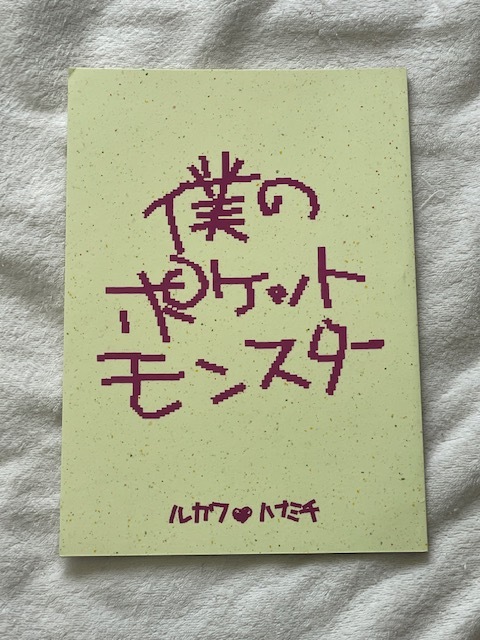 僕の
ポケット
モンスター
ルカワ♥ハナミチ